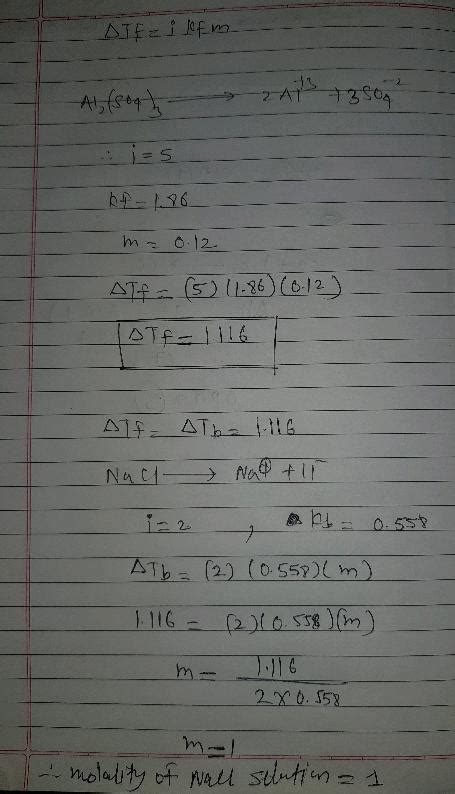 ΔTf = i kf m
Al2(SO4)3 → 2Al+3 + 3SO4-2
∴ i = 5
kf = 1.86
m = 0.12
ΔTf = (5)(1.86)(0.12)
ΔTf = 1.116
ΔTf = ΔTb = 1.116
NaCl → Na⊕ + Cl-
i = 2 , kb = 0.558
ΔTb = (2) (0.558)(m)
1.116 = (2)(0.558)(m)
m = 1.116
2×0.558
m = 1
∴ molality of NaCl solution = 1